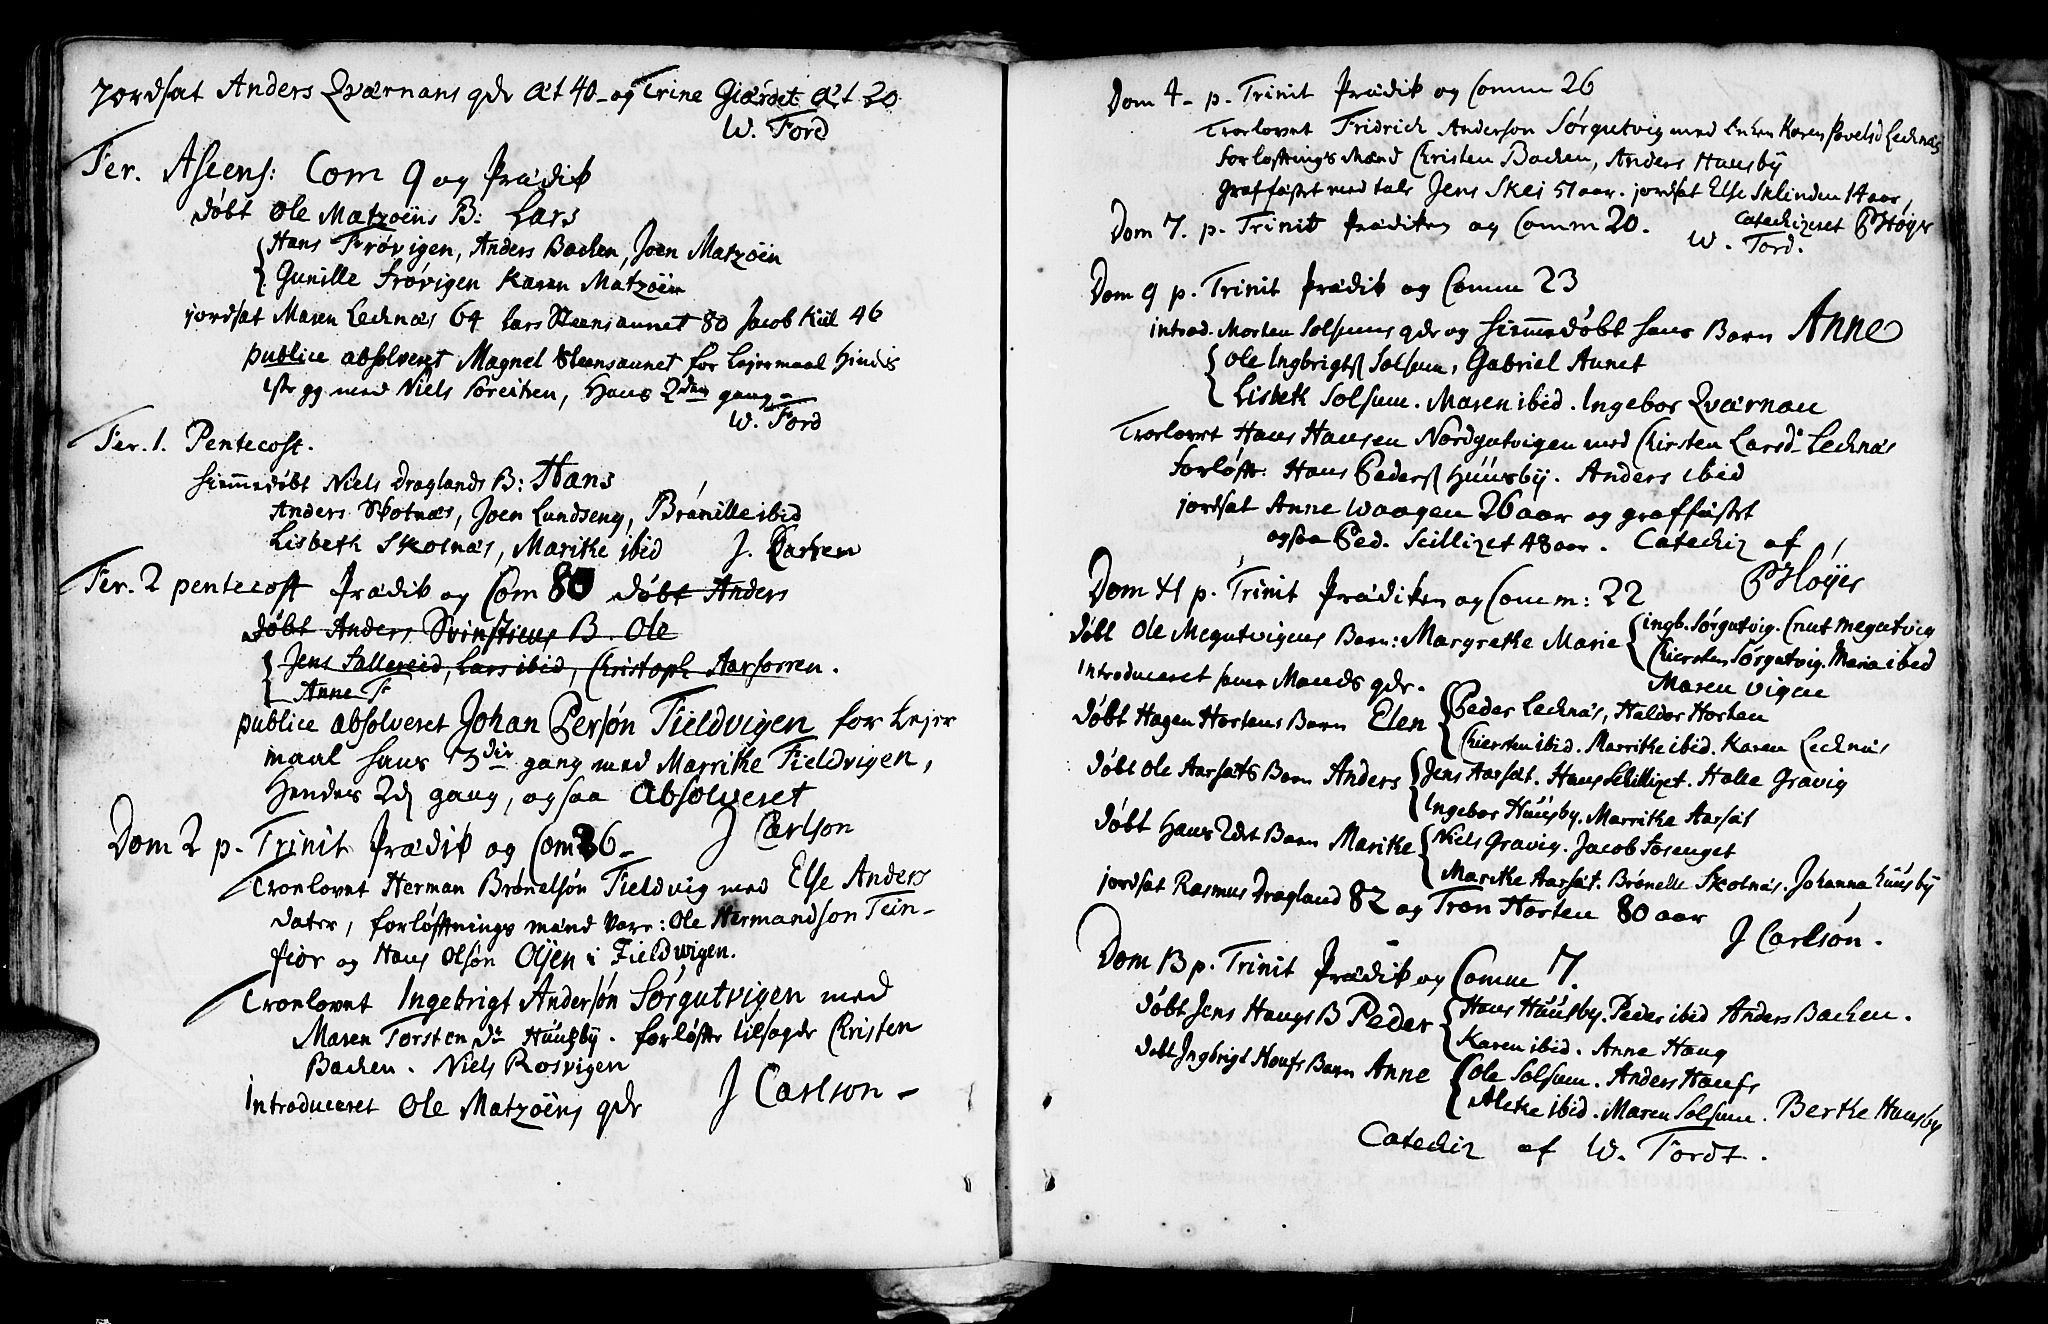 jordsat Anders Qværnans qdr æt 40 - og Trine Giærdet æt 20
W. Ford
Fer. Ascens: Com 9 og Prædik
døbt Ole Matzøens B: Lars
Hans Frøvigen, Anders Bachen, Joen Matzøen
Gunille Frøvigen Karen Matzøen
jordsat Maren Lecknæs 64 Lars Steensaunet 80 Jacob Kiil 46
publice absolveret Magnel Steensaunet for Lejermaal Hindis
1ste gg med Niels Poreitren, Hans 2den gang -
W. Ford
Fer. 1. Pentecost.
Hiemmedøbt Niels Draglands B: Hans
Anders Skotnæs, Joen Lundseng, Brønille ibid
Lisbeth Skotnæs, Marike ibid J. Carlsen
Fer. 2 pentecost Prædik og Com 80 døbt Anders
døbt Anders Svinstiens B. Ole
Jens Sallereid, Lars ibid, Christoph Aarforren.
Anne F
publice absolveret Johan Persøn Fieldvigen for Lejer
maal hans 3die gang med Marrike Fieldvigen,
Hendes 2d gang, ogsaa absolveret
J Carlson
Dom 2 p. Trinit Prædik og Com 36 -
Troelovet Herman Brønelsøn Fieldvig med Else Anders
dater, forløftnings mænd vare: Ole Hermandson Fein-
fior og Hans Olsøn Olsen i Fieldvigen.
Troelovet Ingebrigt Andersøn Sørgutvigen med
Maren Torsten dr Huusby. forløftr tilsagde Christen
Bachen. Niels Rosvigen
Introduceret Ole Matzøens qdr J Carlson -
Dom 4 - p. Trinit Prædik og Comm 26
Troelovet Fridrich Anderson Sørgutvig med Enken Karen Povelsd Lecknæs
forløftnings Mænd Christen Bachen, Anders Hansby
Graffæstet med tale Jens Skei 51 aar. jordsat Else Sklinden 14 aar,
Catechizeret P Høyer
Dom 7. p. Trinit Prædiken og Comm 20. W. Ford.
Dom 9 p. Trinit Prædik og Comm 23
introd. Morten Solsems qdr og hiemmedøbt hans Barn Anne
Ole Ingbrigts Solsem, Gabriel Aunet
Lisbeth Solsum. Maren ibid. Ingebor Qværnan
Troelovet Hans Hansen Nordgutvigen med Chirsten Larsd. Lecknæs
forløftr: Hans Peders Huusby. Anders ibid
jordsat Anne Waagen 26 aar og graffæstet
ogsaa Ped. Seillizet 48 aar. Catechiz af
P Høÿer
Dom 11 p. Trinit Prædiken og Comm: 22
døbt Ole Megutvigens Barn: Margrethe Marie
ingb. Sørgutvig. Cnut Megutvig
Chiersten Sørgutvig. Maria ibid
Maren vigen
Introduceret samme Mands qdr.
døbt Hagen Hortens Barn Elen
Peder Lecknæs, Haldor Horten
Chiersten ibid. Marrike ibid. Karen Lecknæs
døbt Ole Aarsæts Barn Anders
Jens Aarsæt. Hans Schillizet. Halle Gravig
Ingebor Huusby. Marrike Aarsæt
døbt Hans 2det Barn Marike
Niels Gravig. Jacob Fosenget
Marike Aarsæt. Brønelle Skotnæs. Johanna Huusby
jordsat Rasmus Dragland 82 og Tron Horten 80 aar
J Carlsøn.
Dom 13 p. Trinit Prædik og Comm 17.
døbt Jens Haugs B Peder
Hans Huusby. Peder ibid Anders Bachen.
Karen ibid. Anne Haug
døbt Ingbrigt Houfs Barn Anne
Ole Solsum. Anders Houfs
Aleke ibid. Maren Solsum. Berthe Huusby
Catechiz af W. Fordt.